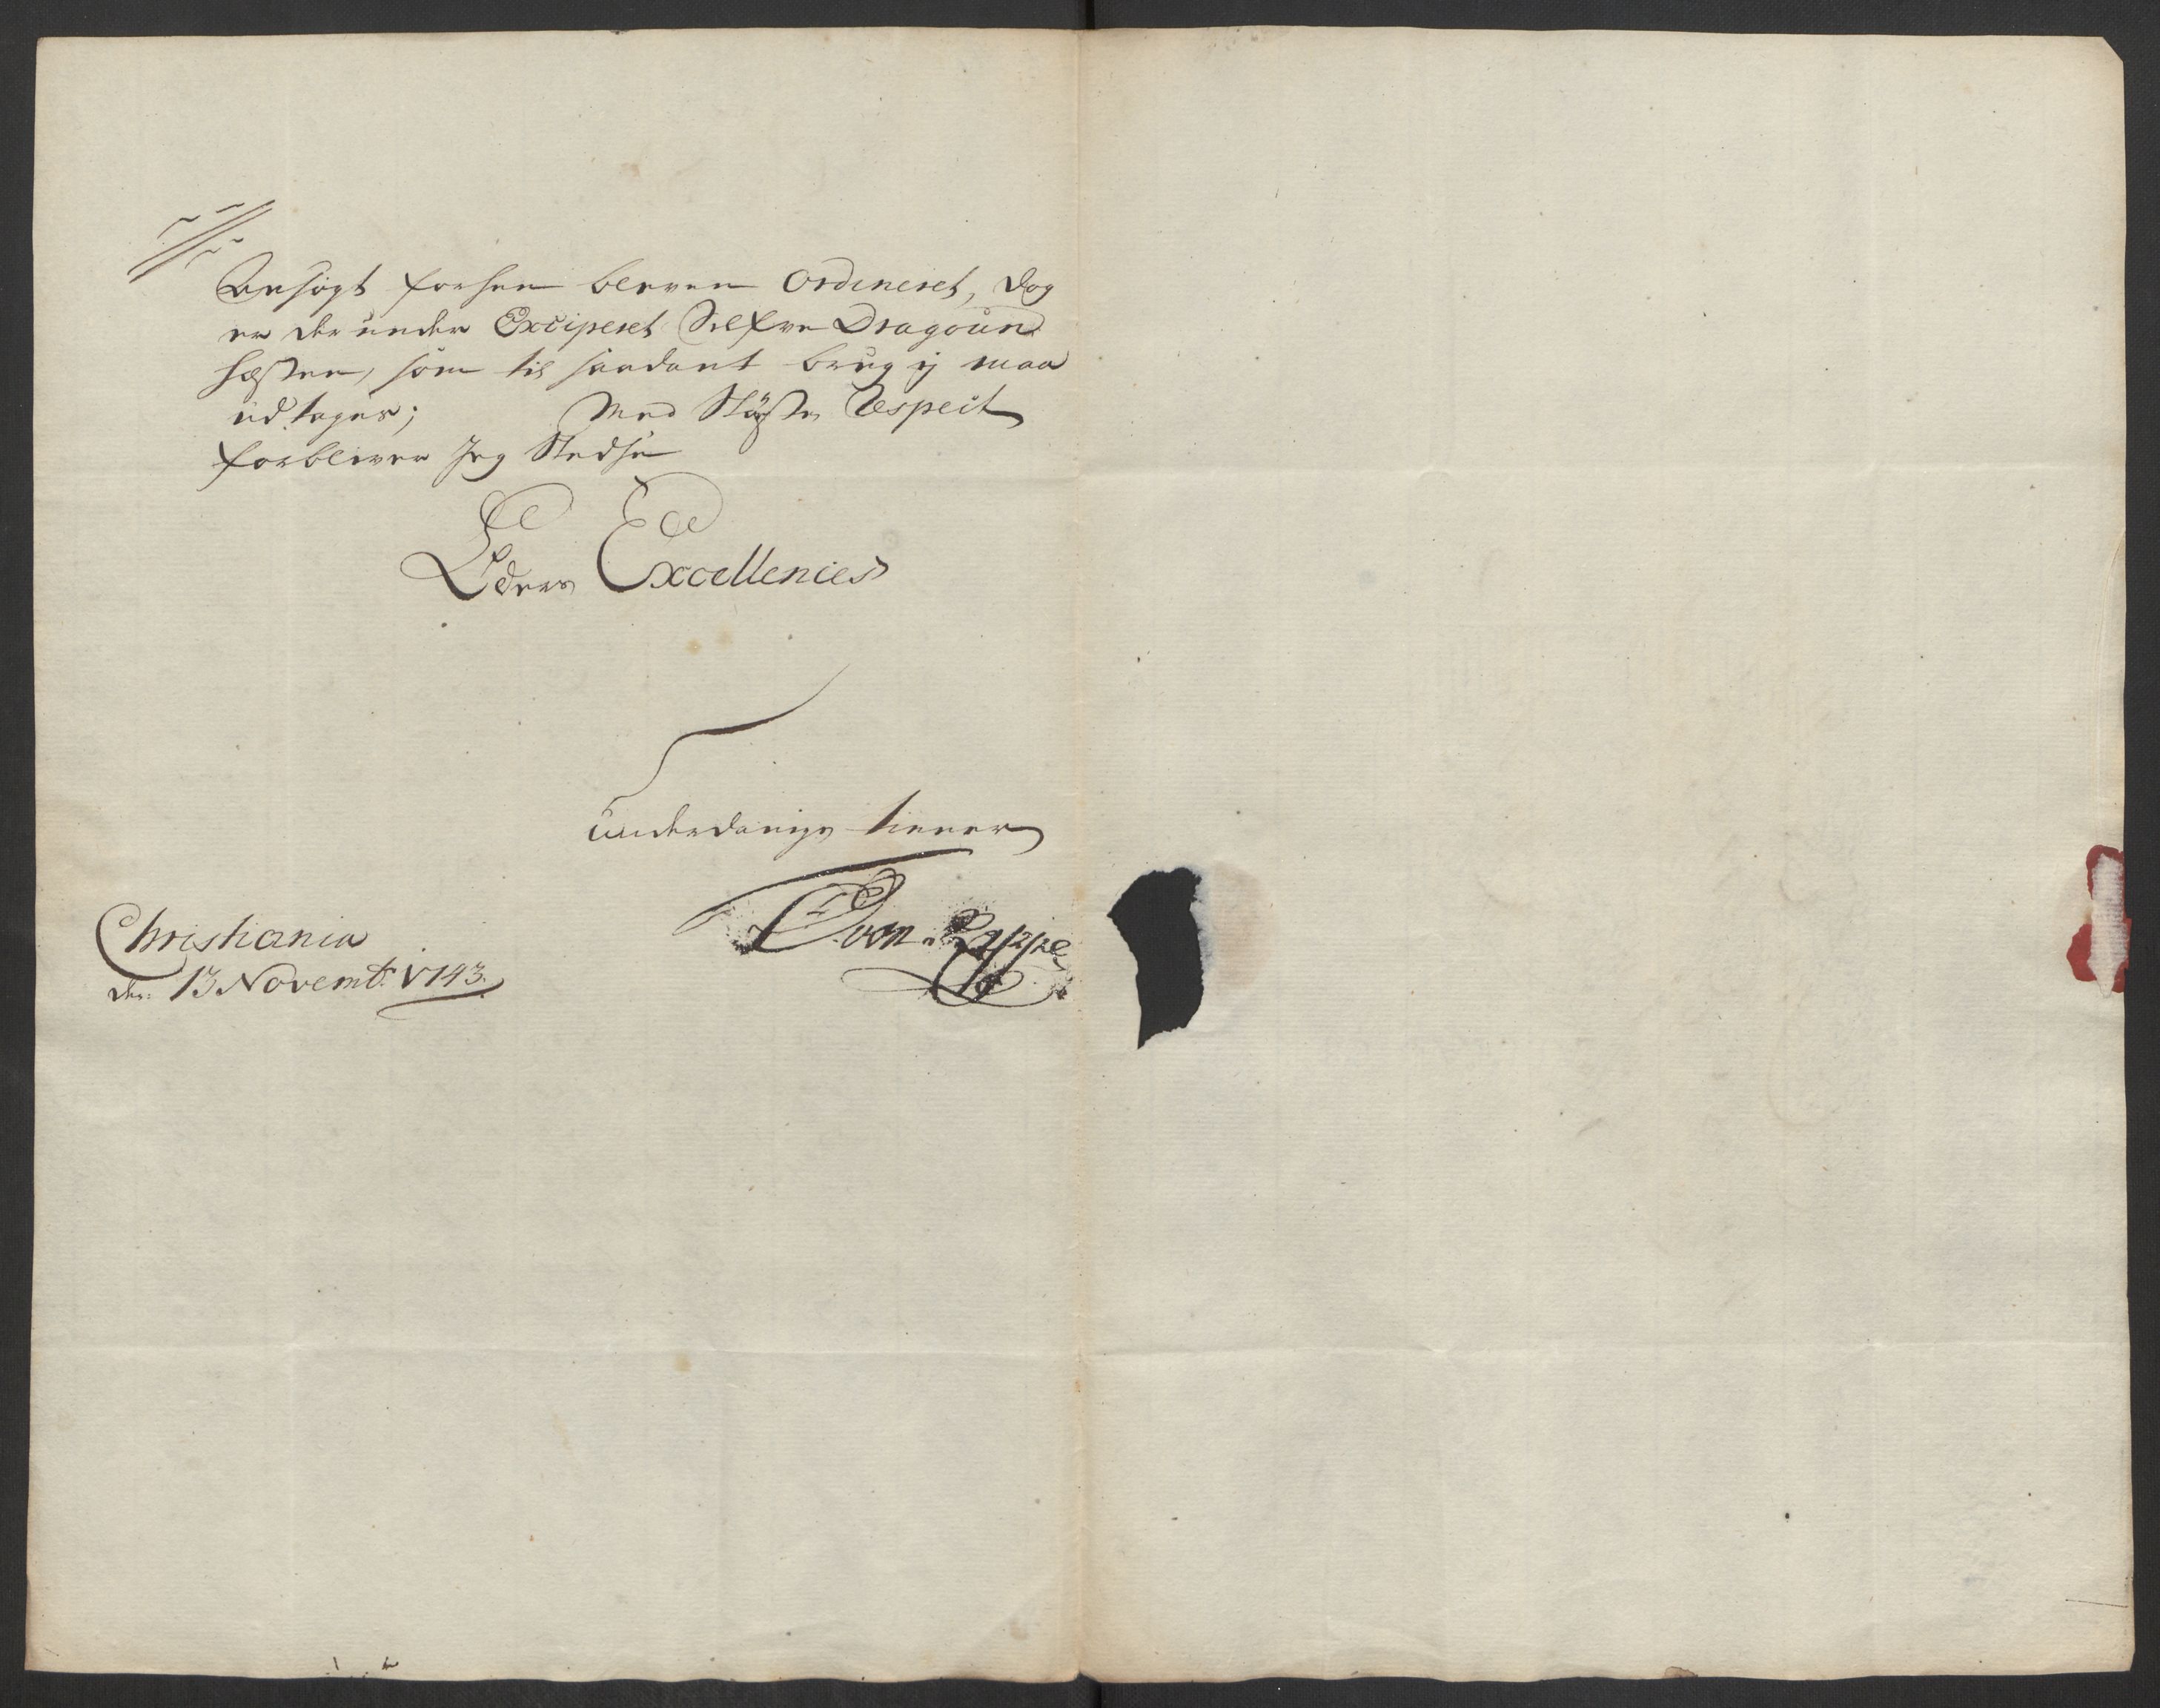 Ansøgt forhen bleven Ordineret, dog
er derunder Exciperet Selfve Dragoun
hæsten, som til saadant brug ej maa
udtages; Med Største Respect
forbliver Jeg Stedse
Eders Excellences
underdanige tiener
von
Christiania
den: 13 Novembr: 1743.